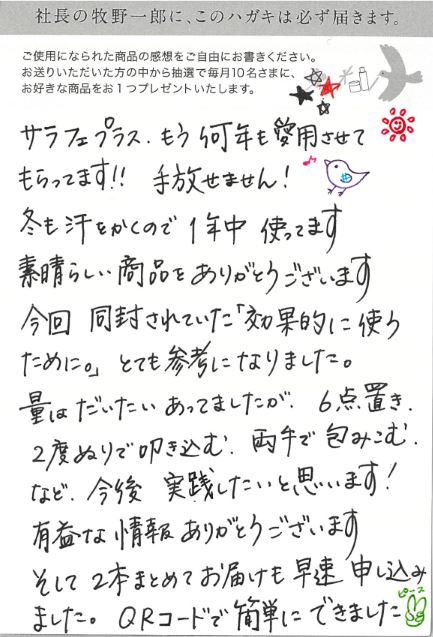 社長の牧野一郎に、このハガキは必ず届きます。
ご使用になられた商品の感想をご自由にお書きください。
お送りいただいた方の中から抽選で毎月10名さまに、
お好きな商品をお1つプレゼントいたします。
サラフェプラス.もう何年も愛用させて
もらってます!! 手放せません!
冬も汗をかくので 1年中 使ってます
素晴らしい商品をありがとうございます
今回 同封されていた「効果的に使う
ために。」とても参考になりました。
量はだいたいあってましたが、6点置き、
2度ぬりで叩き込む、両手で包みこむ、
など、今後 実践したいと思います!
有益な情報ありがとうございます
そして2本まとめてお届けも早速 申し込み
ました。QRコードで簡単にできました
ピース